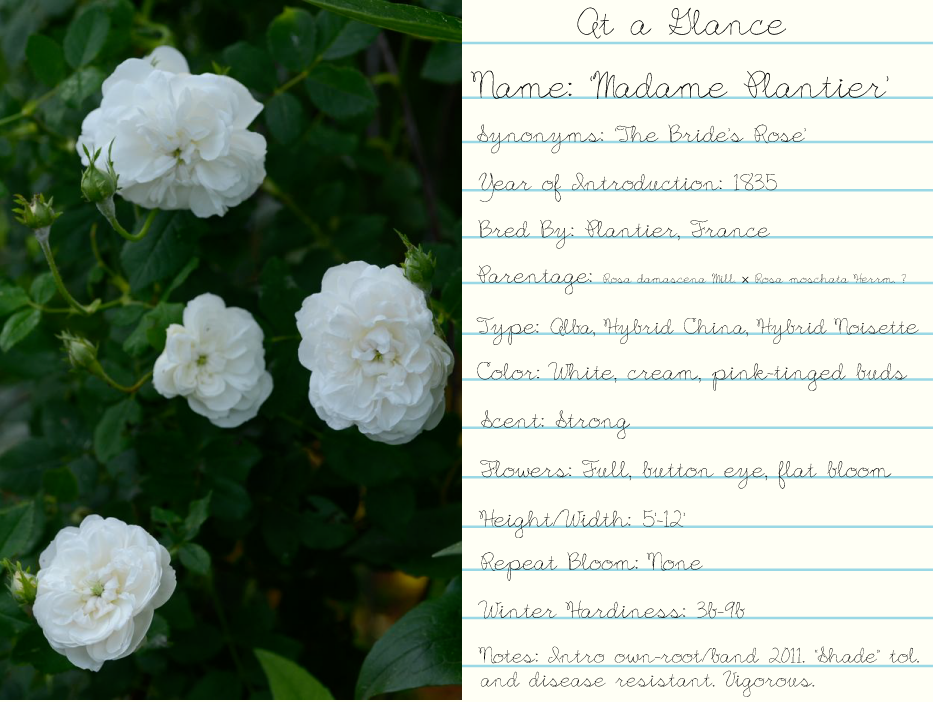 At a Glance
Name: 'Madame Plantier'
Synonyms: 'The Bride's Rose'
Year of Introduction: 1835
Bred By: Plantier, France
Parentage: Rosa damascena Mill. x Rosa moschata Herrm. ?
Type: Alba, Hybrid China, Hybrid Noisette
Color: White, cream, pink-tinged buds
Scent: Strong
Flowers: Full, button eye, flat bloom
Height/Width: 5'-12'
Repeat Bloom: None
Winter Hardiness: 3b-9b
Notes: Intro own-root/band 2011. "Shade" tol.
and disease resistant. Vigorous.